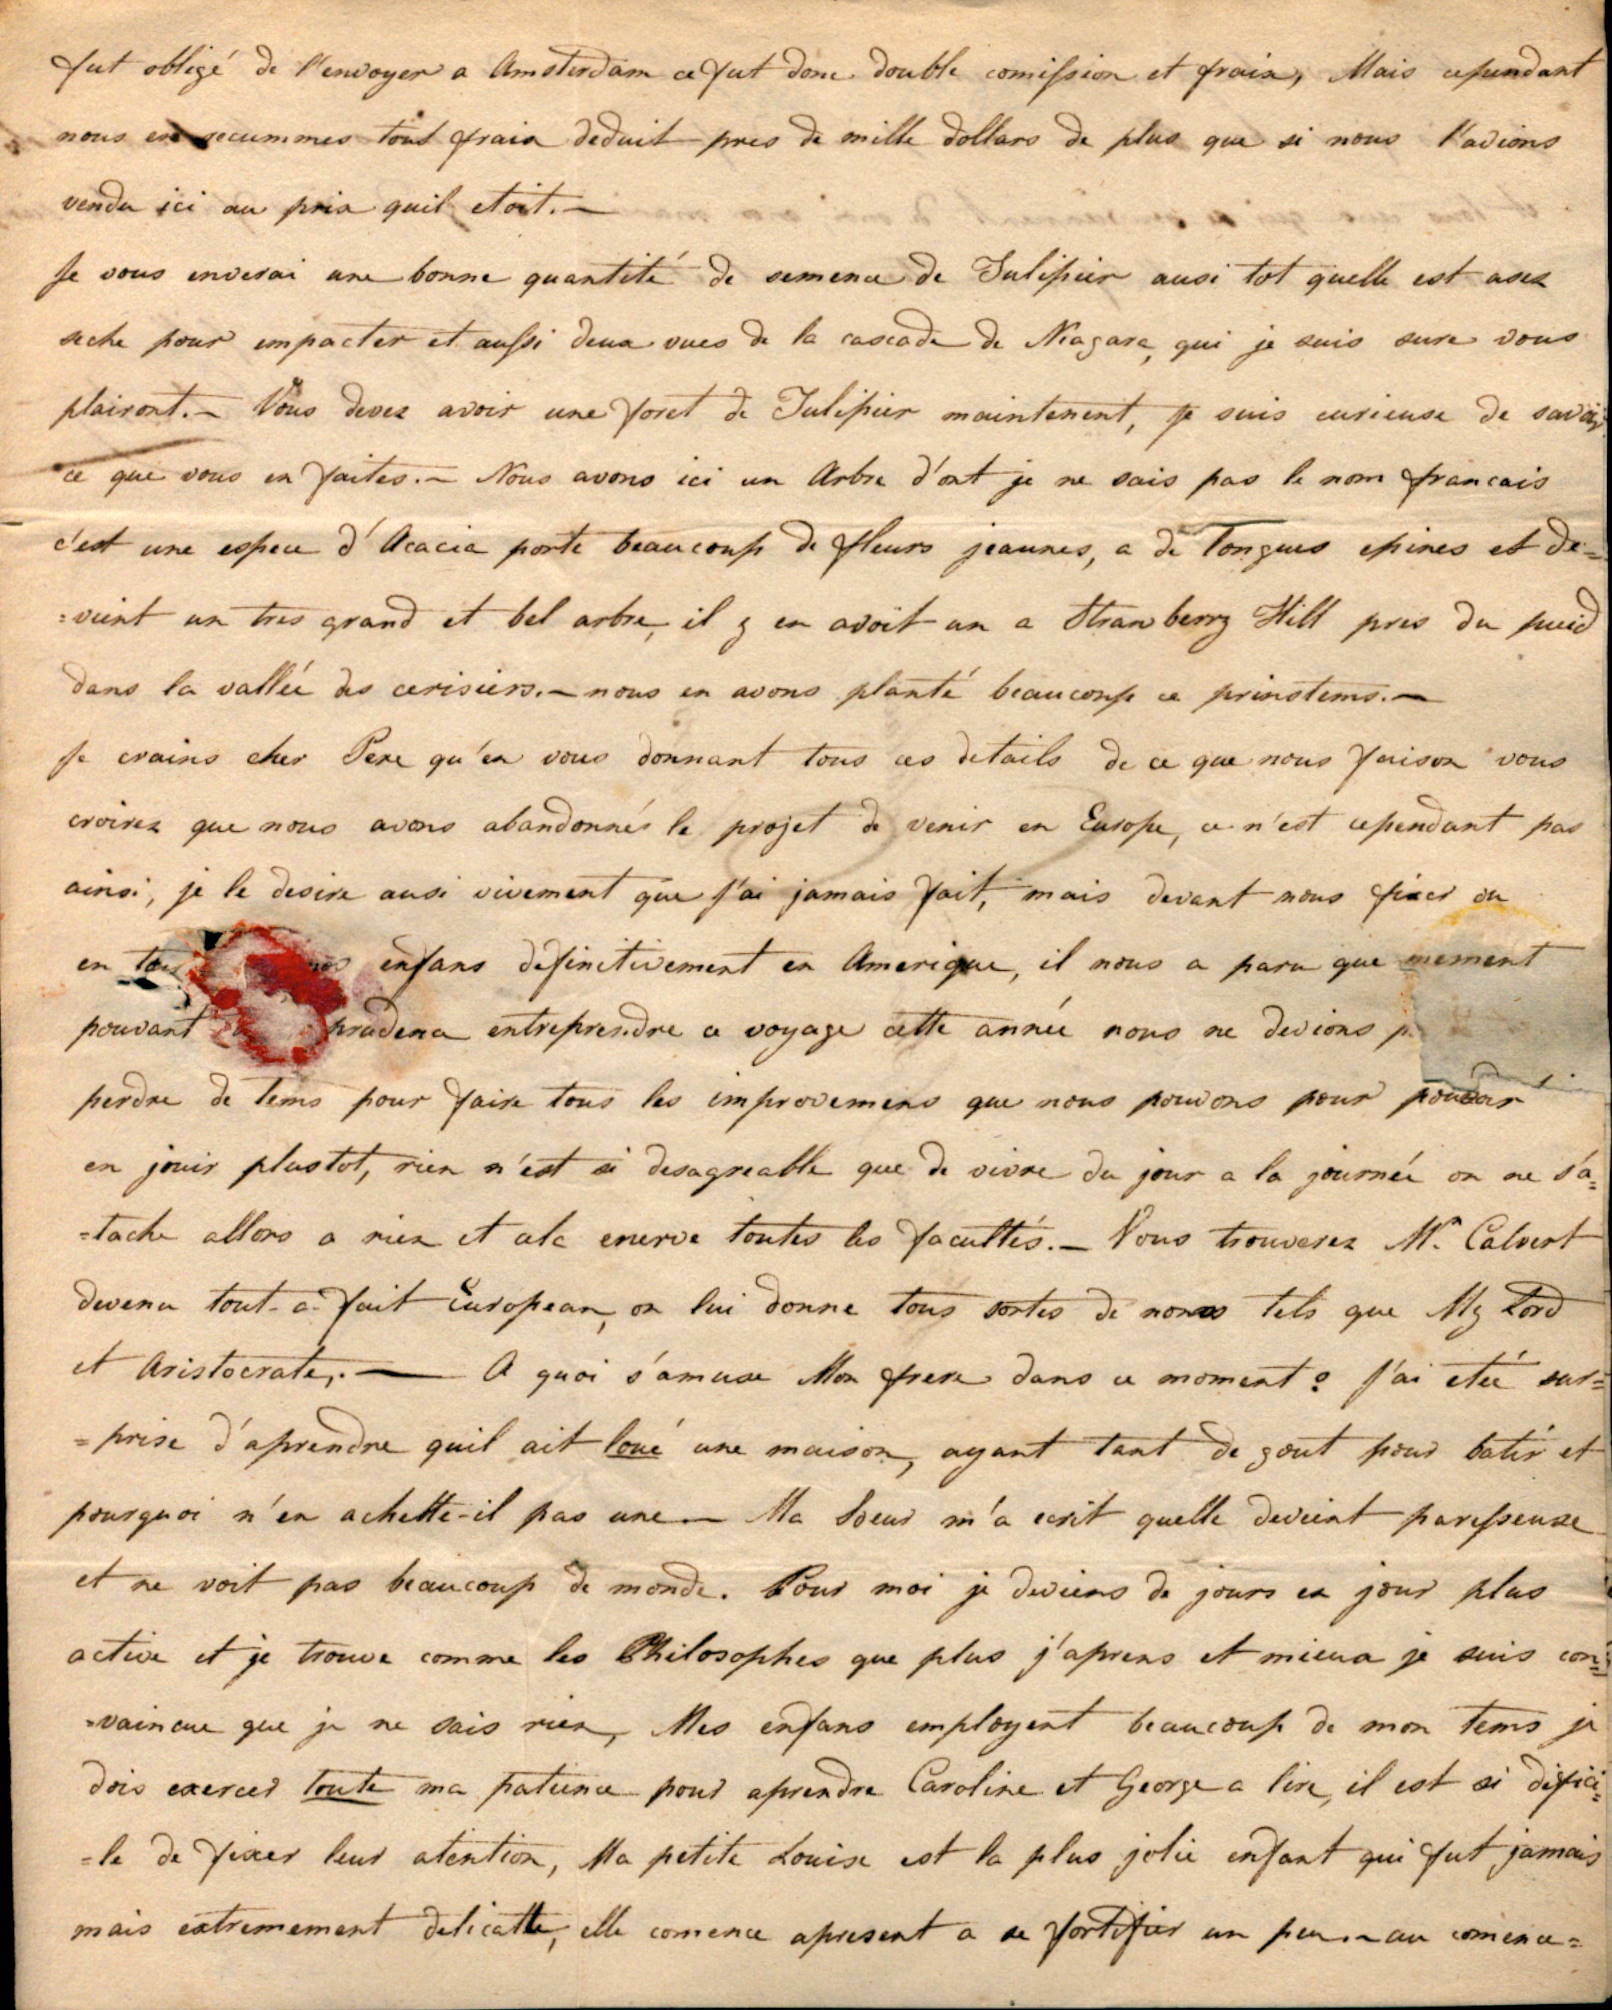 fut obligé de l'envoyer a Amsterdam ce fut donc double comission et fraix, Mais cependant
nous en recummes tout fraix deduit pres de mille dollars de plus que si nous l'avions
vendu ici au prix quil etoit.—
Je vous enverai une bonne quantité de semence de Tulipier ausi tot quelle est asez
seche pour empacter et aussi deux vues de la cascade de Niagara, qui je suis sure vous
plairont.— Vous devez avoir une foret de Tulipier maintenent, je suis curieuse de savoir
ce que vous en faites.— Nous avons ici un Arbre d'ont je ne sais pas le nom francais
c'est une espece d'Acacia porte beaucoup de fleurs jeaunes, a de longues epines et de=
=vient un tres grand et bel arbre, il y en avoit un a Strawberry Hill pres du puid
dans la vallée des cerisiers.— nous en avons planté beaucoup ce prinstems.—
Je crains cher Pere qu'en vous donnant tous ces details de ce que nous faison vous
croirez que nous avons abandonnés le projet de venir en Europe, ce n'est cependant pas
ainsi, je le desire ausi vivement que j'ai jamais fait, mais devant nous fixer ou
en enfans definitivement en Amerique, il nous a paru que mement
pouvant prudence entreprendre ce voyage cette année nous ne devions
perdre de tems pour faire tous les improvemens que nous pouvons pour pouvoir
en jouir plustot, rien n'est si desagreable que de vivre du jour a la journée on ne s'a=
=tache allors a rien et cela enerve toutes les facultés.— Vous trouverez Mr. Calvert
devenu tout-a-fait European, on lui donne tous sortes de noms tels que My Lord
et Aristocrate,.— A quoi s'amuse Mon frere dans ce moment? j'ai etée sur=
=prise d'aprendre quil ait loué une maison, ayant tant de gout pour batir et
pourquoi n'en achette-il pas une— Ma Soeur m'a ecrit quelle devient paresseuse
et ne voit pas beaucoup de monde. Pour moi je deviens de jours en jour plus
active et je trouve comme les Philosophes que plus j'aprens et mieux je suis con=
=vaincue que je ne sais rien, Mes enfans employent beaucoup de mon tems je
dois exercer toute ma patience pour aprendre Caroline et George a lire, il est si difici=
=le de fixer leur atention, Ma petite Louise est la plus jolie enfant qui fut jamais
mais extremement delicatte, elle comence apresent a se fortifier un peu.— au comence=